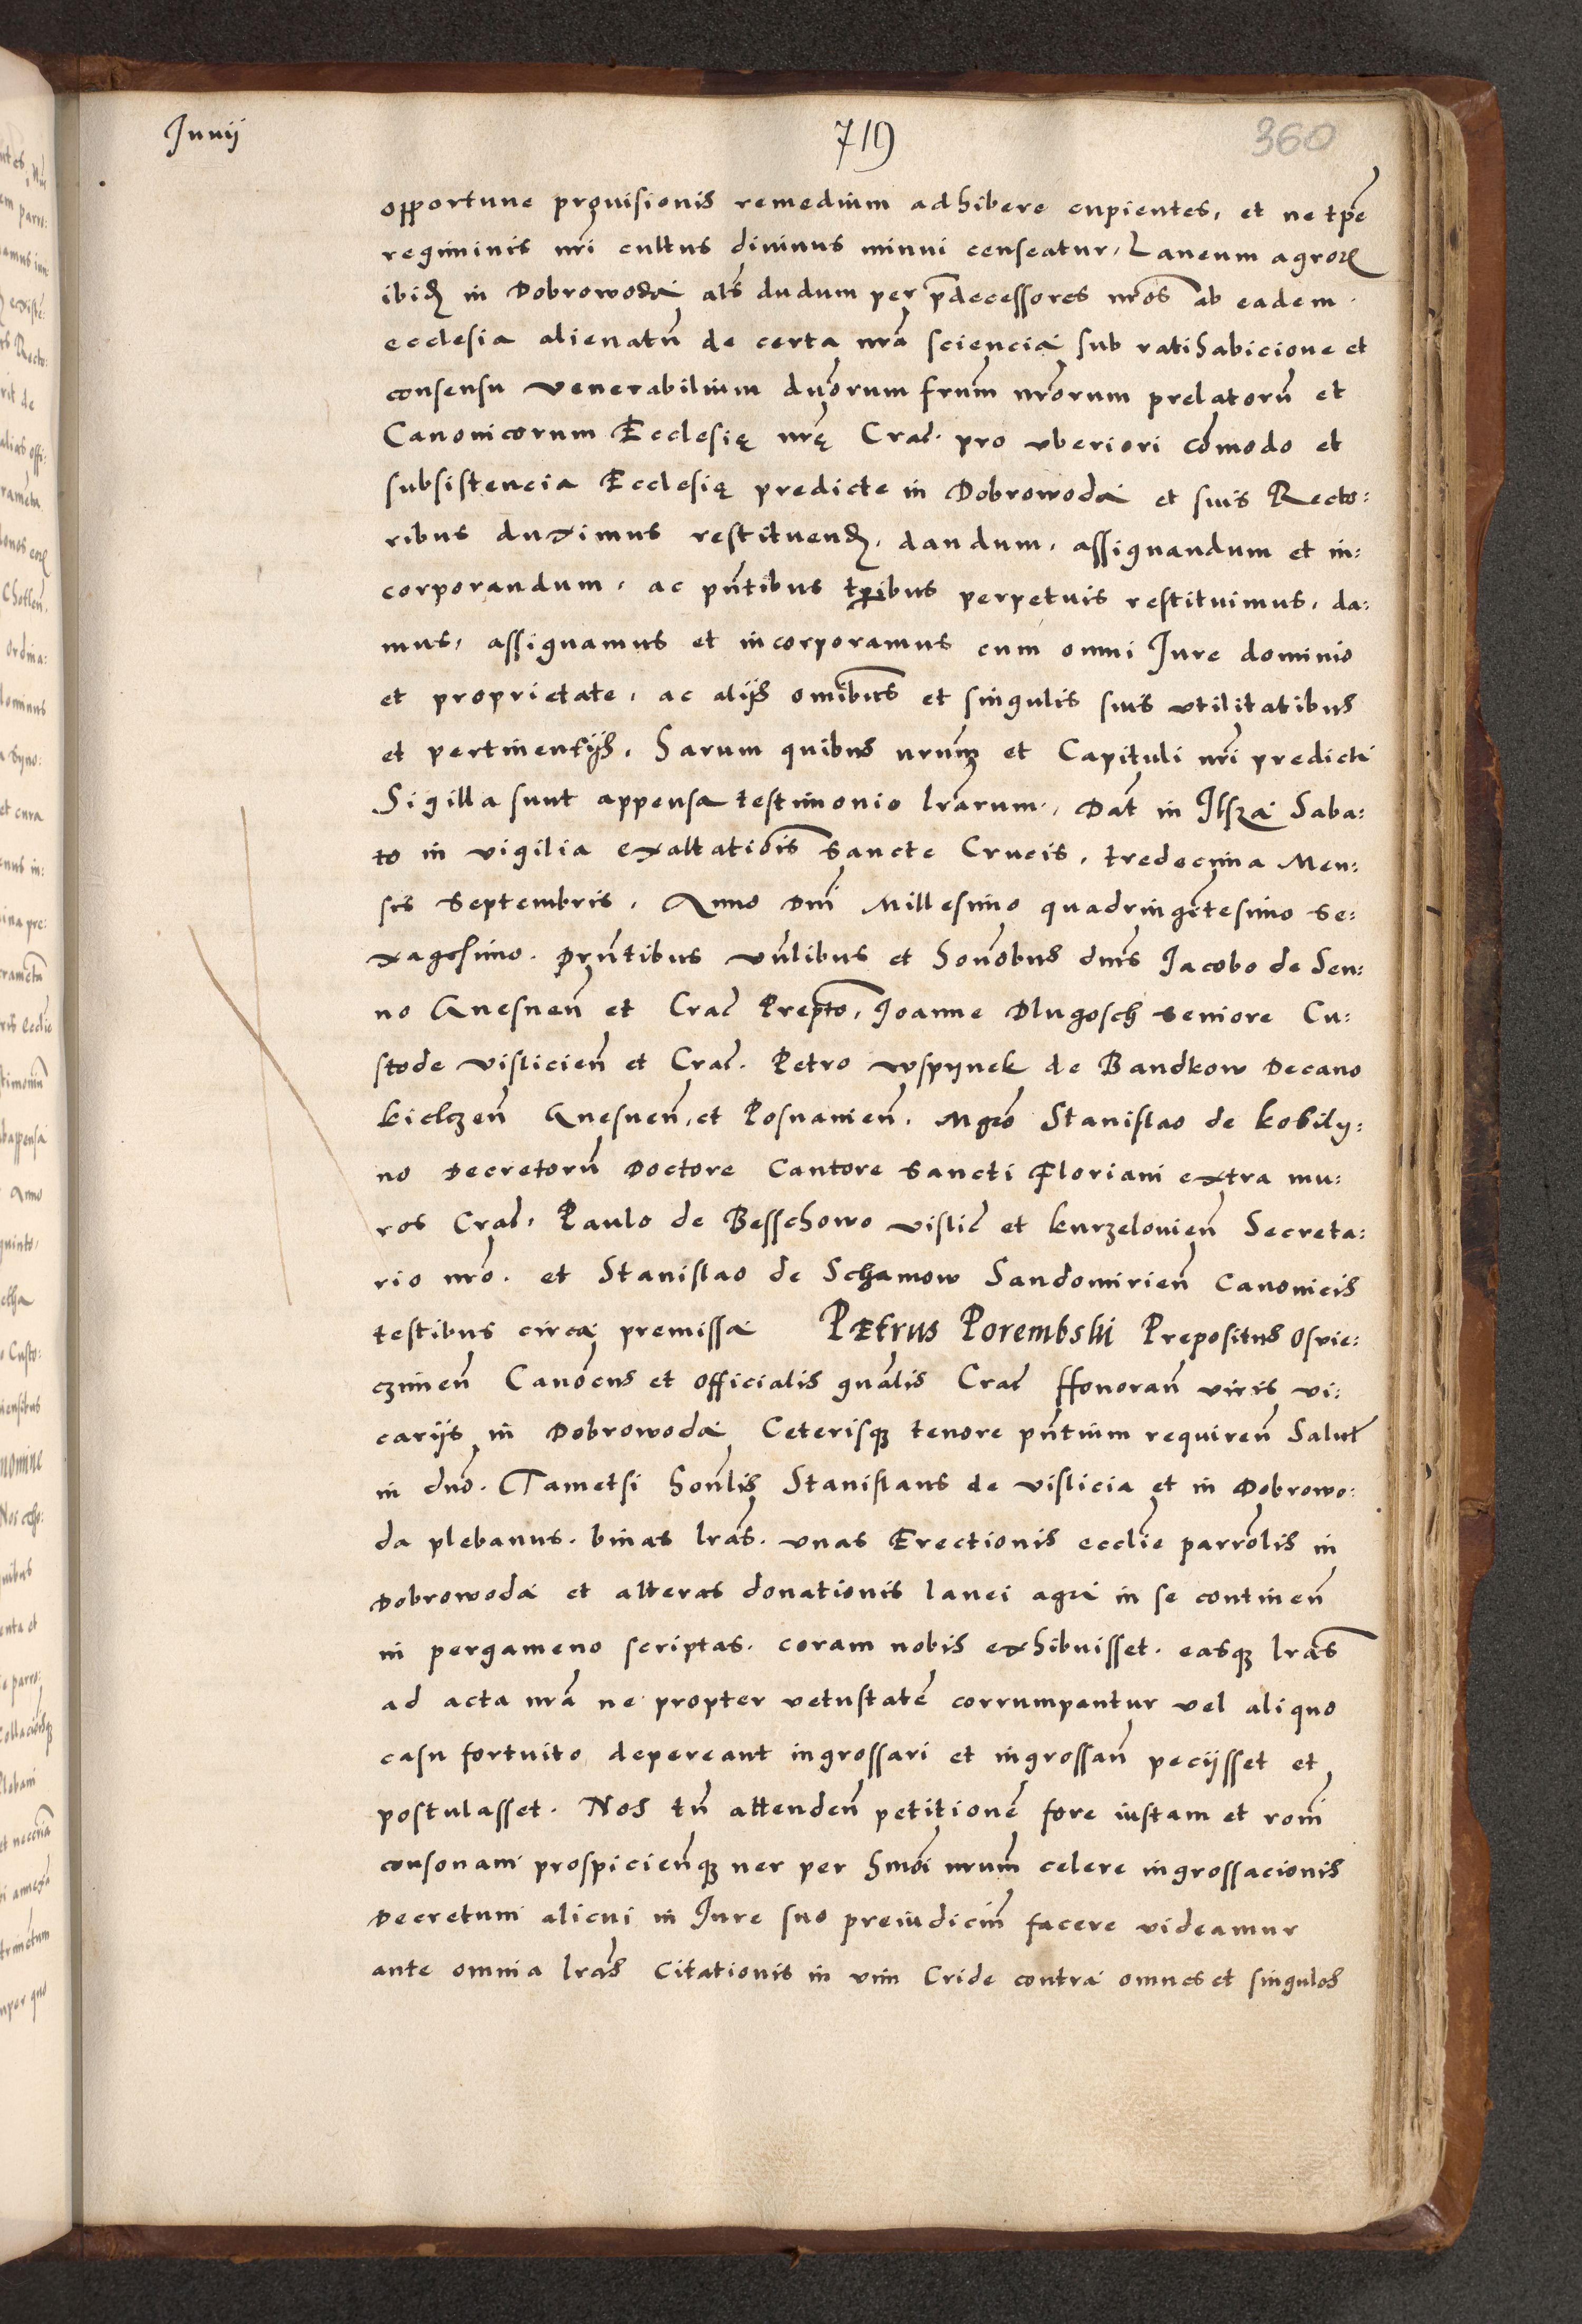 Junij
719
360
opportune prouisionis remedium adhibere cupientes, et ne tpē
regiminis nr̄i cultus diuinus minui censeatur, Laneum agroꝝ
ibid̄ in Dobrowoda al̄s dudum per p̄decessores nr̄os ab eadem
ecclesia alienatū de certa nr̄a sciencia sub ratihabicione et
consensu venerabilium dn̄orum fr̄um nr̄orum prelatorū et
Canonicorum Ecclesię nr̄ę Crac̄. pro vberiori cōmodo et
subsistencia Ecclesię predicte in Dobrowoda et suis Recto:
ribus duximus restituend̄, dandum, assignandum et in:
corporandum, ac pn̄tibus tp̄ribus perpetuis restituimus, da:
mus, assignamus et incorporamus cum omni Jure dominio
et proprietate, ac alijs om̄ibus et singulis suis vtilitatibus
et pertinentijs, Harum quibus nr̄um et Capituli nr̄i predicti
Sigilla sunt appensa testimonio lr̄arum, Dat̄ in Ilsza Saba:
to in vigilia exaltatiōis Sancte Crucis, tredecima Men:
sis Septembris, Anno Dn̄i Millesimo quadringētesimo se:
xagesimo. Prn̄tibus vn̄libus et Honōbus dn̄is Jacobo de Sen:
no Gnesnen̄ et Crac̄ Prepto, Joanne Dlugosch Seniore Cu:
stode vislicien̄ et Crac̄. Petro wspijnek de Bandkow Decano
kielczen̄ Gnesnen̄, et Posnanien̄. Mgr̄o Stanislao de kobily:
no Decretorū Doctore Cantore Sancti Floriani extra mu:
ros Crac̄, Paulo de Besschowo vislic̄ et kurzelouien̄ Secreta:
rio nr̄o. et Stanislao de Schamow Sandomirien̄ Canonicis
testibus circa premissa Petrus Porembski Prepositus Osvie:
czimen̄ Canōcus et Officialis gn̄alis Crac̄ Honoran̄ viris vi:
carijs in Dobrowoda Ceterisqꝫ tenore pn̄tium requiren̄ Salut̄
in dn̄o. Tametsi Hon̄lis Stanislaus de vislicia et in Dobrowo:
da plebanus. binas lr̄as. vnas Erectionis ecclīe parrōlis in
Dobrowoda et alteras donationis lanei agri in se continen̄
in pergameno scriptas. coram nobis exhibuisset. easqꝫ lr̄as
ad acta nr̄a ne propter vetustatē corrumpantur vel aliquo
casu fortuito depereant ingrossari et ingrossan̄ pecijsset et
postulasset. Nos tn̄ attenden̄ petitionē fore iustam et rōni
consonam prospicien̄qꝫ ner per hmōi nr̄um celere ingrossacionis
Decretum alicui in Jure suo preiudiciū facere videamur
ante omnia lr̄as Citationis in vim Cride contra omnes et singulos